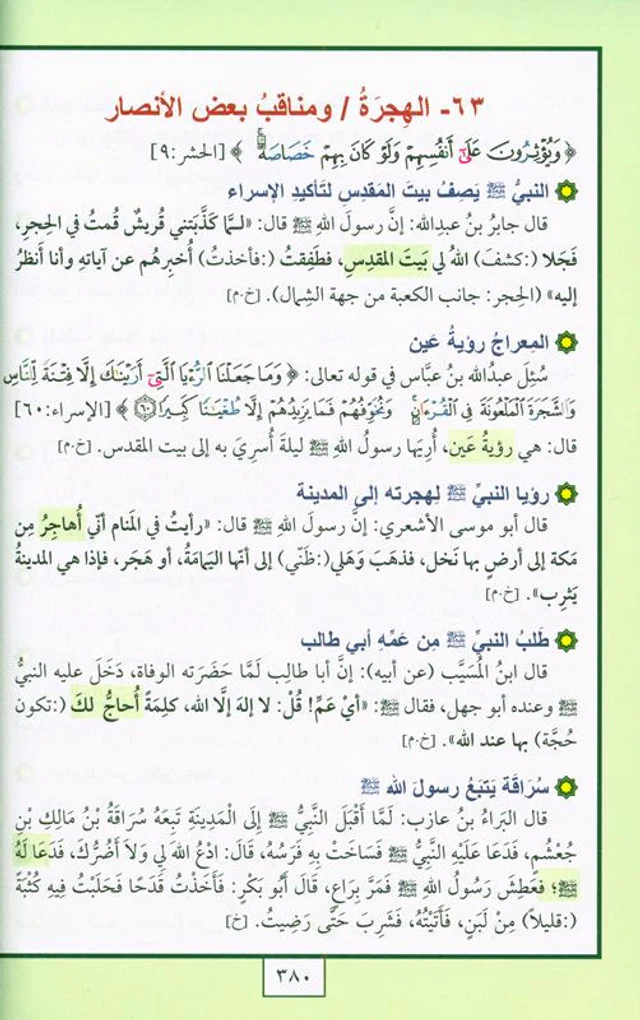 ٦٣- الهِجرَةُ / ومناقبُ بعض الأنصار
﴿ وَيُؤْثِرُونَ عَلَىٰٓ أَنفُسِهِمْ وَلَوْ كَانَ بِهِمْ خَصَاصَةٌ ۚ ﴾ [الحشر:٩]
النبيُّ ﷺ يَصِفُ بيتَ المَقدِسِ لتَأكيدِ الإسراء
قال جابرُ بنُ عبدِالله: إنَّ رسولَ اللهِ ﷺ قال: «لـمَّا كَذَّبَتني قُريشٌ قُمتُ في الحِجرِ،
فَجَلا (:كشفَ) اللهُ لي بَيتَ المقدِسِ، فطَفِقتُ (:فأخذتُ) أُخبِرُهُم عن آياتِه وأنا أَنظُرُ
إليه» (الحِجر: جانب الكعبة من جهة الشِمال). [خ.م]
المِعراجُ رؤيةُ عَين
سُئِلَ عبدُاللهِ بنُ عبَّاس في قوله تعالى: ﴿ وَمَا جَعَلْنَا ٱلرُّءْيَا ٱلَّتِىٓ أَرَيْنَـٰكَ إِلَّا فِتْنَةً لِّلنَّاسِ
وَٱلشَّجَرَةَ ٱلْمَلْعُونَةَ فِى ٱلْقُرْءَانِ ۚ وَنُخَوِّفُهُمْ فَمَا يَزِيدُهُمْ إِلَّا طُغْيَـٰنًا كَبِيرًا ۝٦٠ ﴾ [الإسراء:٦٠]
قال: هي رؤيةُ عَين، أُرِيَها رسولُ اللهِ ﷺ ليلةَ أُسرِيَ به إلى بيت المقدس. [خ.م]
رؤيا النبيِّ ﷺ لِهجرته إلى المدينة
قال أبو موسى الأشعري: إنَّ رسولَ اللهِ ﷺ قال: «رأيتُ في المَنام أنّي أُهاجِرُ مِن
مَكة إلى أرضٍ بها نَخل، فذهَبَ وَهَلي(:ظَنّي) إلى أنّها اليَمامَةُ، أو هَجَر، فإذا هي المدينةُ
يَثرِب». [خ.م]
طَلبُ النبيِّ ﷺ مِن عَمِّهِ أبي طالب
قال ابنُ المُسَيَّب (عن أبيه): إنَّ أبا طالِب لَمَّا حَضَرَته الوفاة، دَخَلَ عليه النبيُّ
ﷺ وعنده أبو جهل، فقال ﷺ: «أيْ عَمِّ! قُلْ: لا إلهَ إلَّا الله، كلِمَةً أُحاجُّ لكَ (:تكون
حُجَّة) بها عند الله». [خ.م]
سُرَاقَة يَتبَعُ رسولَ الله ﷺ
قال البَراءُ بنُ عازِب: لَمَّا أَقْبَلَ النَّبِيُّ ﷺ إِلَى الْمَدِينَةِ تَبِعَهُ سُرَاقَةُ بْنُ مَالِكِ بْنِ
جُعْشُمٍ، فَدَعَا عَلَيْهِ النَّبِيُّ ﷺ فَسَاخَتْ بِهِ فَرَسُهُ، قَالَ: ادْعُ اللهَ لِي وَلاَ أَضُرُّكَ، فَدَعَا لَهُ
ﷺ؛ فعَطِشَ رَسُولُ اللهِ ﷺ فَمَرَّ بِرَاعٍ، قَالَ أَبُو بَكْرٍ: فَأَخَذْتُ قَدَحًا فَحَلَبْتُ فِيهِ كُثْبَةً
(:قليلاً) مِنْ لَبَنٍ، فَأَتَيْتُهُ، فَشَرِبَ حَتَّى رَضِيتُ. [خ]
٣٨٠